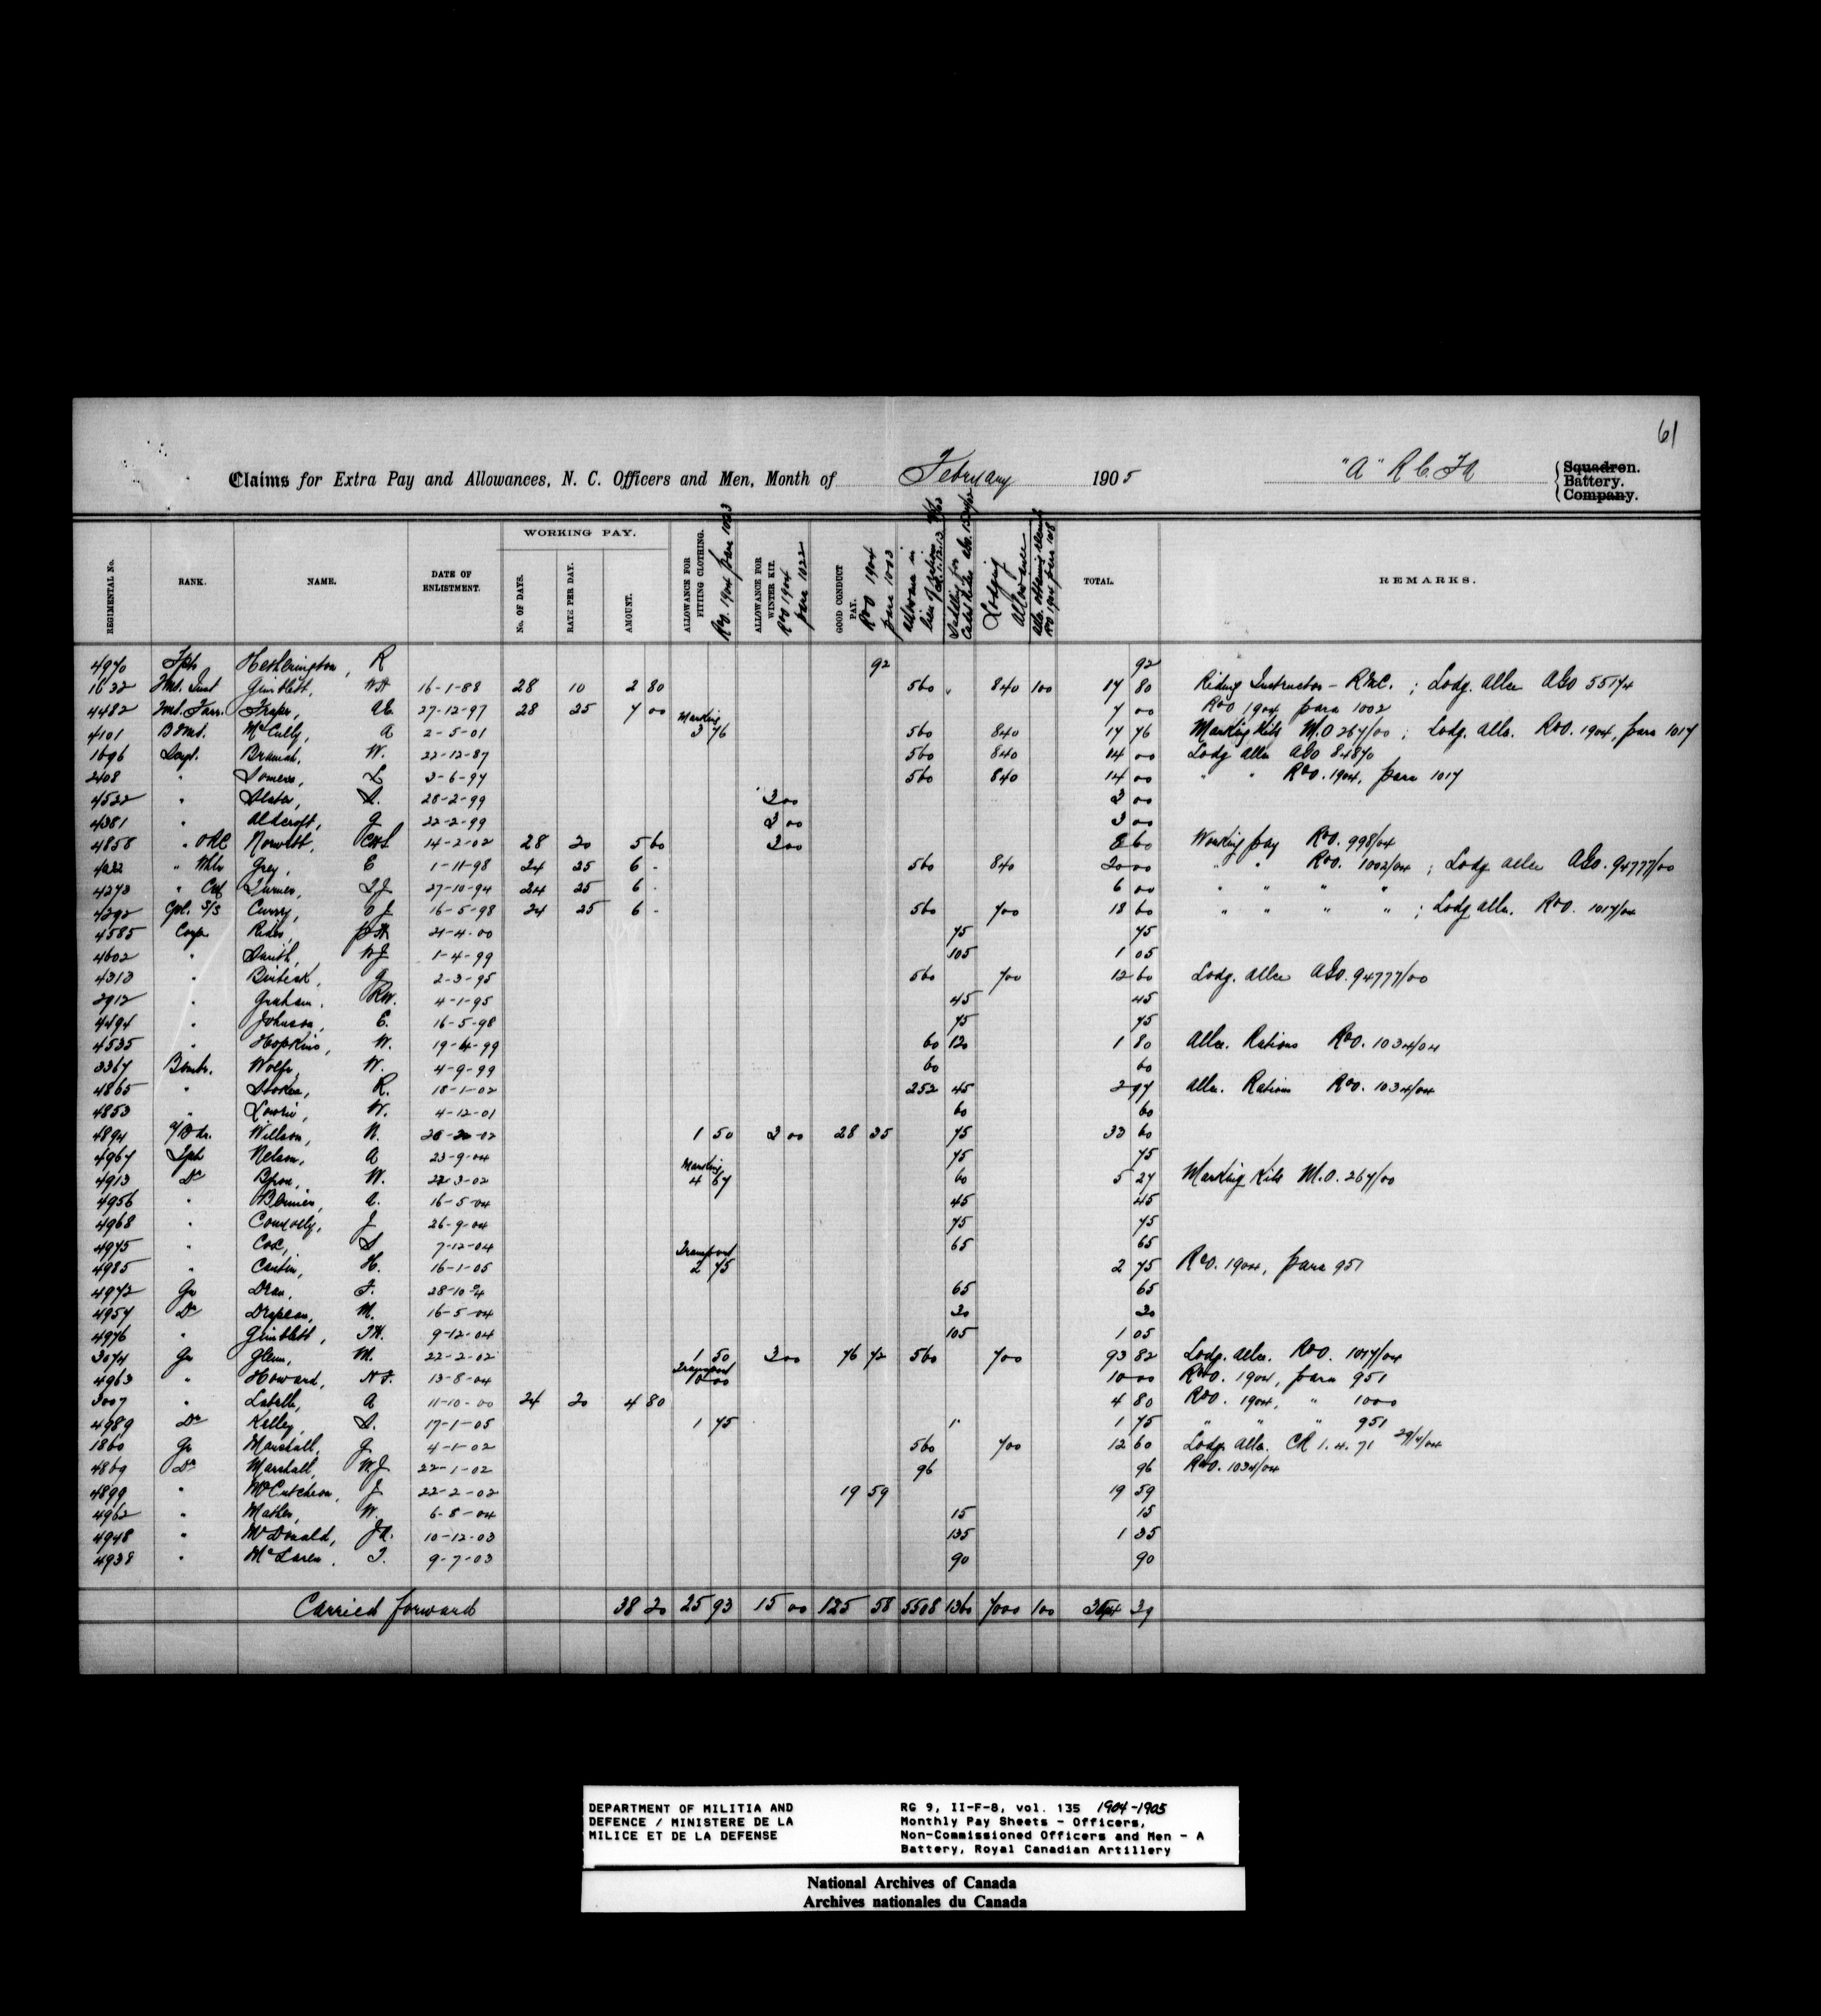 61
Claims for Extra Pay and Allowances, N. C. Officers and Men, Month of February 1905 "A" R C F A Squadron. Battery. Company.
REGIMENTAL No. RANK. NAME. DATE OF ENLISTMENT. WORKING PAY. No. OF DAYS. RATE PER DAY. AMOUNT. ALLOWANCE FOR FITTING CLOTHING. RO. 1904 para 1023 ALLOWANCE FOR WINTER KIT. RO 1904 para 1022 GOOD CONDUCT PAY. RO 1904 para 1003 Allowance in lieu of rations Lodging Allowance TOTAL. REMARKS.
4970 Tptr Hetherington, R 92 92
1632 Gimblett, 16-1-88 28 10 2 80 560 840 100 17 80 Riding Instructor - RMC. ; Lodg. Allce AGO 55174
4482 Fraser, 27-12-97 28 25 7 00 7 00 RO 1904 para 1002
4101 McCully, A 2-5-01 Marking 3 76 560 840 17 76 Marking Kits M.O 267/00 ; Lodg. allce. RO. 1904, para 1017
1696 Sergt. Bramah, W. 22-12-87 560 840 14 00 Lodg allce AGO 84870
2408 " Somers, L 3-6-97 560 840 14 00 " " RO. 1904, para 1017
4532 " Slater, S. 28-2-99 3 00 3 00
4381 " Aldcroft, G 22-2-99 3 00 3 00
4858 " 14-2-02 28 20 5 60 3 00 8 60 Working pay RO. 998/04
4022 " Grey, E 1-11-98 24 25 6 - 560 840 20 00 " " RO. 1002/04 ; Lodg allce AGO. 94777/00
4273 " Turner, 27-10-94 24 25 6 - 6 00 " " " "
4292 Cpl. S/S Curry, 16-5-98 24 25 6 - 560 700 18 60 " " " " ; Lodg allce. RO. 1017/04
4585 Corp. Rider, 21-4-00 75 75
4602 " Smith, WJ 1-4-99 105 1 05
4313 " G 2-3-95 560 700 12 60 Lodg. allce AGO. 94777/00
2912 " Graham, RW. 4-1-95 45 45
4494 " Johnson, E. 16-5-98 75 75
4535 " Hopkins, W. 19-4-99 60 120 1 80 Allce. Rations RO. 1034/04
3367 Bombr. Wolfe, W. 4-9-99 60 60
4865 " Stokes, R. 18-1-02 252 45 2 97 Allce. Rations RO. 1034/04
4853 " Lowrie, W. 4-12-01 60 60
4894 a/Bdr. Willson, N. 1 50 3 00 28 35 75 33 60
4967 Tptr Nelson, A 23-9-04 75 75
4913 Dr Byron, W. 22-3-02 Marking 4 67 60 5 27 Marking Kits M.O. 267/00
4956 " A. 16-5-04 45 45
4968 " Connolly, J 26-9-04 75 75
4975 " Cox, S 7-12-04 65 65
4985 " Cantin, H. 16-1-05 Transport 2 75 2 75 RO. 1904, para 951
4972 Gr Dean, F. 28-10-04 65 65
4957 Dr Drapeau, M. 16-5-04 30 30
4976 " Gimblett, 9-12-04 105 1 05
3074 Gr Glenn, M. 22-2-02 1 50 3 00 76 72 560 700 93 82 Lodg. allce. RO. 1017/04
4963 " Howard, 13-8-04 Transport 10 00 10 00 RO. 1904, para 951
3007 " Labelle, A 11-10-00 24 20 4 80 4 80 RO. 1904, " 1000
4989 Dr Kelley, S. 17-1-05 1 75 1 75 " " " 951
1860 Gr Marshall, G 4-1-02 560 700 12 60 Lodg. allce. CR 1.4.71 29/4/04
4869 Dr Marshall, WJ 22-1-02 96 96 RO. 1034/04
4899 " McCutcheon, J 22-2-02 19 59 19 59
4962 " Mather, W. 6-8-04 15 15
4948 " McDonald, JA. 10-12-03 135 1 35
4938 " McLaren, T. 9-7-03 90 90
Carried forward 38 20 25 93 15 00 125 58 5508 1360 7000 100 39
DEPARTMENT OF MILITIA AND
DEFENCE / MINISTERE DE LA
MILICE ET DE LA DEFENSE
RG 9, II-F-8, vol. 135 1904-1905
Monthly Pay Sheets - Officers,
Non-Commissioned Officers and Men - A
Battery, Royal Canadian Artillery
National Archives of Canada
Archives nationales du Canada